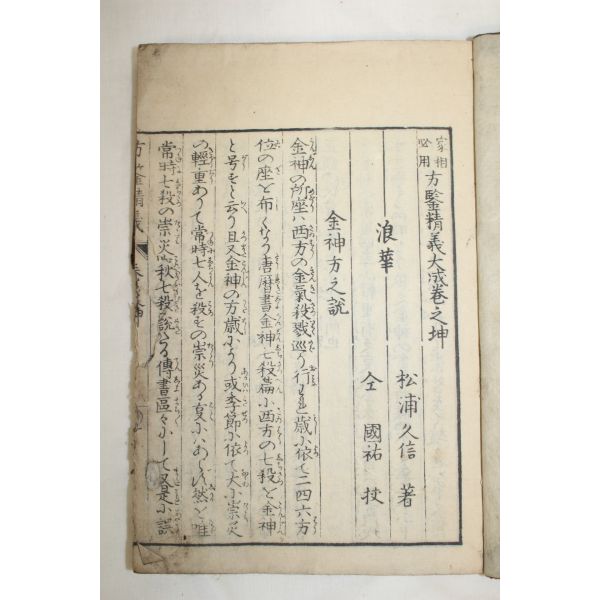 家相必用 方鑒精義大成卷之坤
浪華 松浦久信 著
仝 國祐 校
金神方之説
金神の所座ハ西方の金氣殺戮巡り行る歳小依て二四六方
位の座を布くなり唐暦書金神七殺篇小西方の七殺と金神
と号すと云う且又金神の方歳小より或季節小依て大小祟災
の輕重ありて常時七人を殺すの祟災ある事小ハあらず然と唯
常時七殺の祟災 七殺 説 傳書區々小して又是小誤
方鑒精義 卷之坤